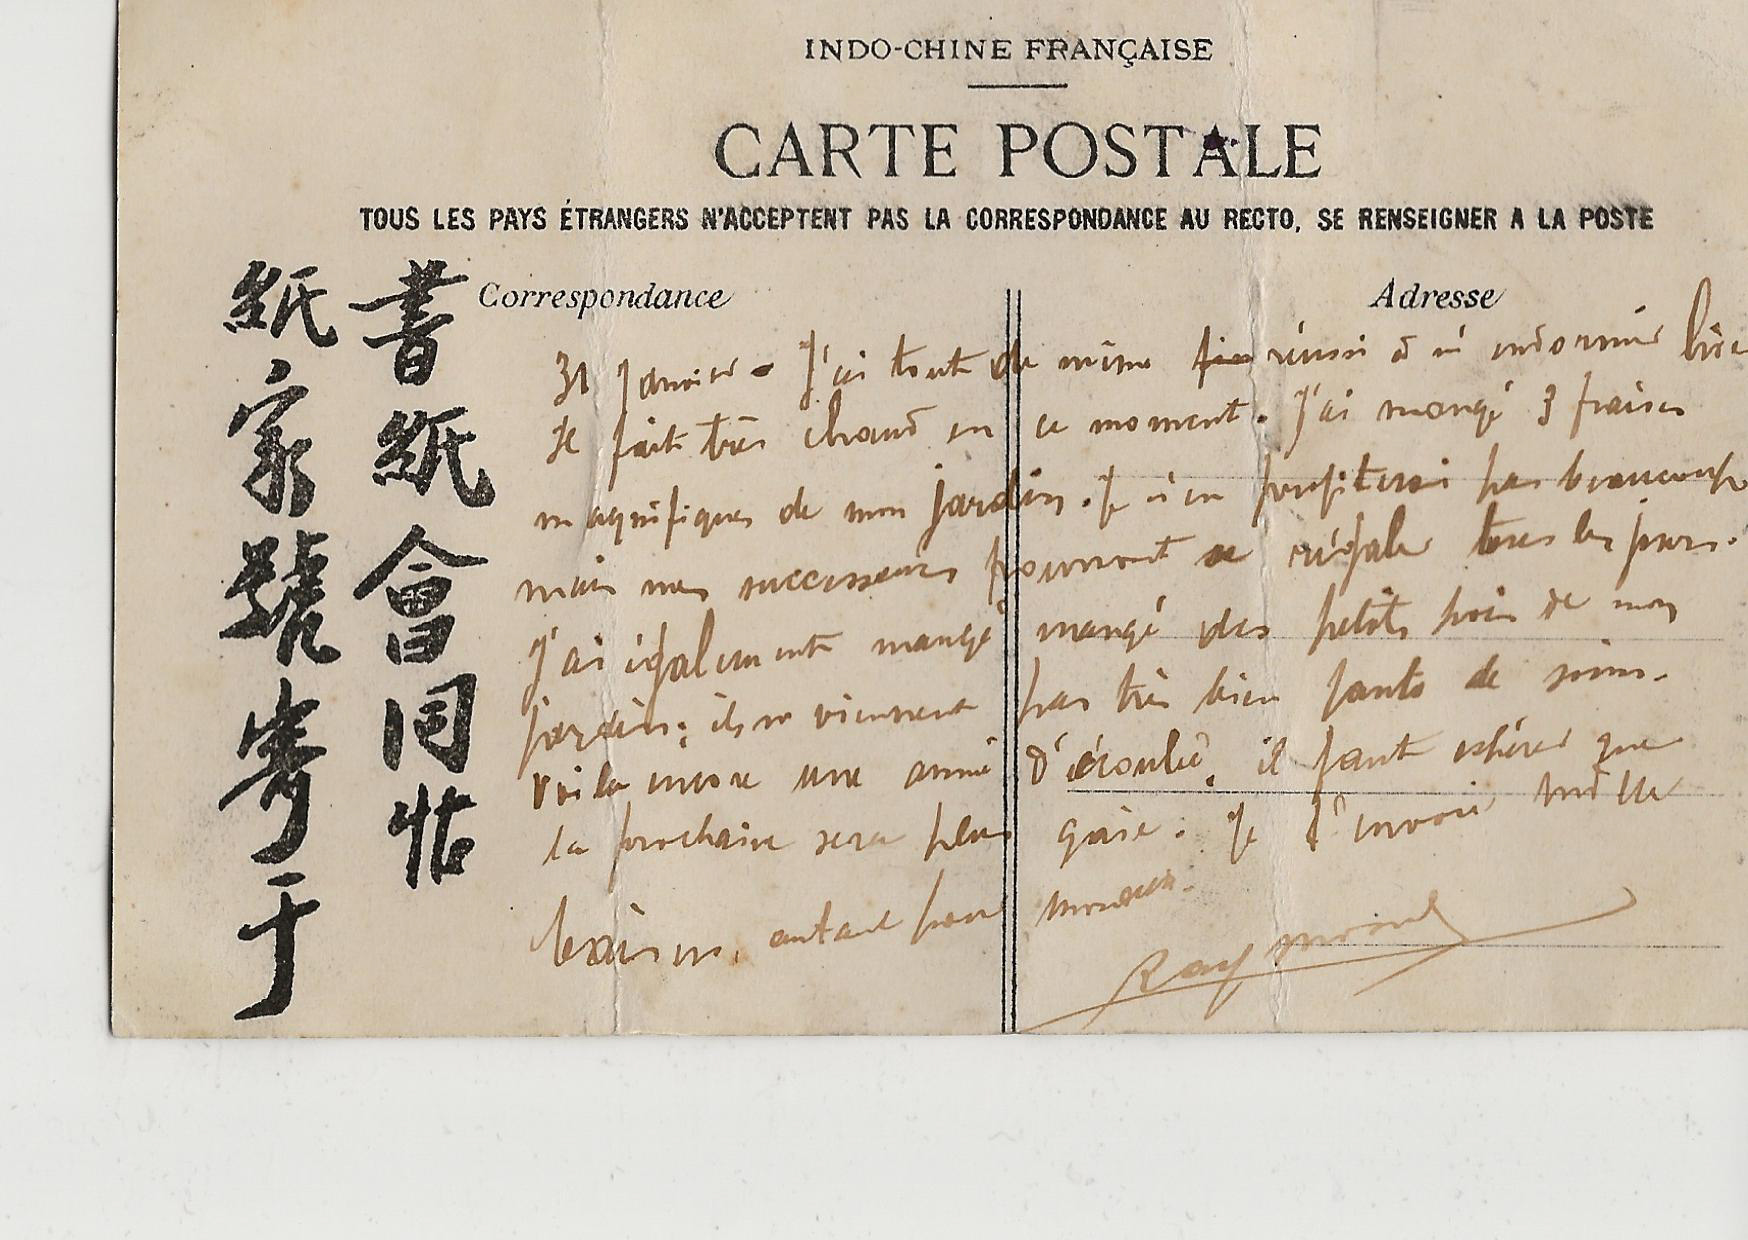 INDO-CHINE FRANÇAISE
CARTE POSTALE
TOUS LES PAYS ÉTRANGERS N'ACCEPTENT PAS LA CORRESPONDANCE AU RECTO, SE RENSEIGNER A LA POSTE
書紙會同帖
紙家號寄于
Correspondance
Adresse
31 Janvier - J'ai tout de même réussi à m'endormir
Il fait très chaud en ce moment. J'ai mangé 3 fraises
magnifiques de mon jardin. Je n'en profiterai pas beaucoup
mais mes successeurs pourront se régaler tous les jours.
J'ai également mangé mangé des petits pois de mon
jardin; ils ne viennent pas très bien faute de soins.
Voila encore une année d'écoulée, il faut espérer que
la prochaine sera plus gaie. Je t'envoie mille
baisers, autant pour maman.
Raymond